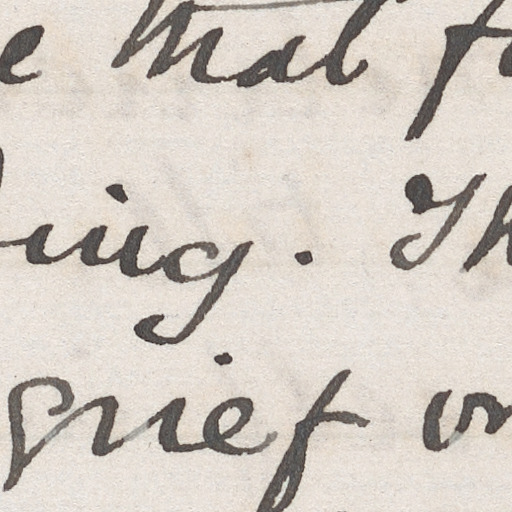 e that f
ing. Th
grief or